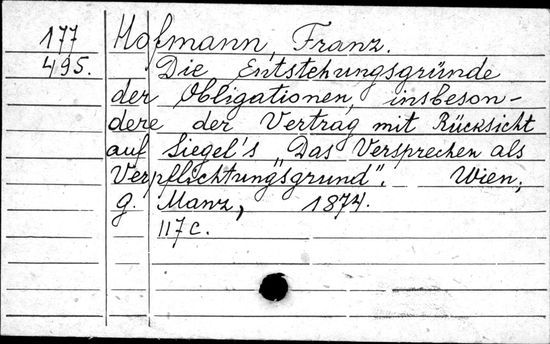 177 Hofmann, Franz.
495. Die Entstehungsgründe
der Obligationen, insbeson-
dere der Vertrag mit Rücksicht
auf Siegel's „Das Versprechen als
Verpflichtungsgrund". Wien,
g. Manz, 1874.
117 c.